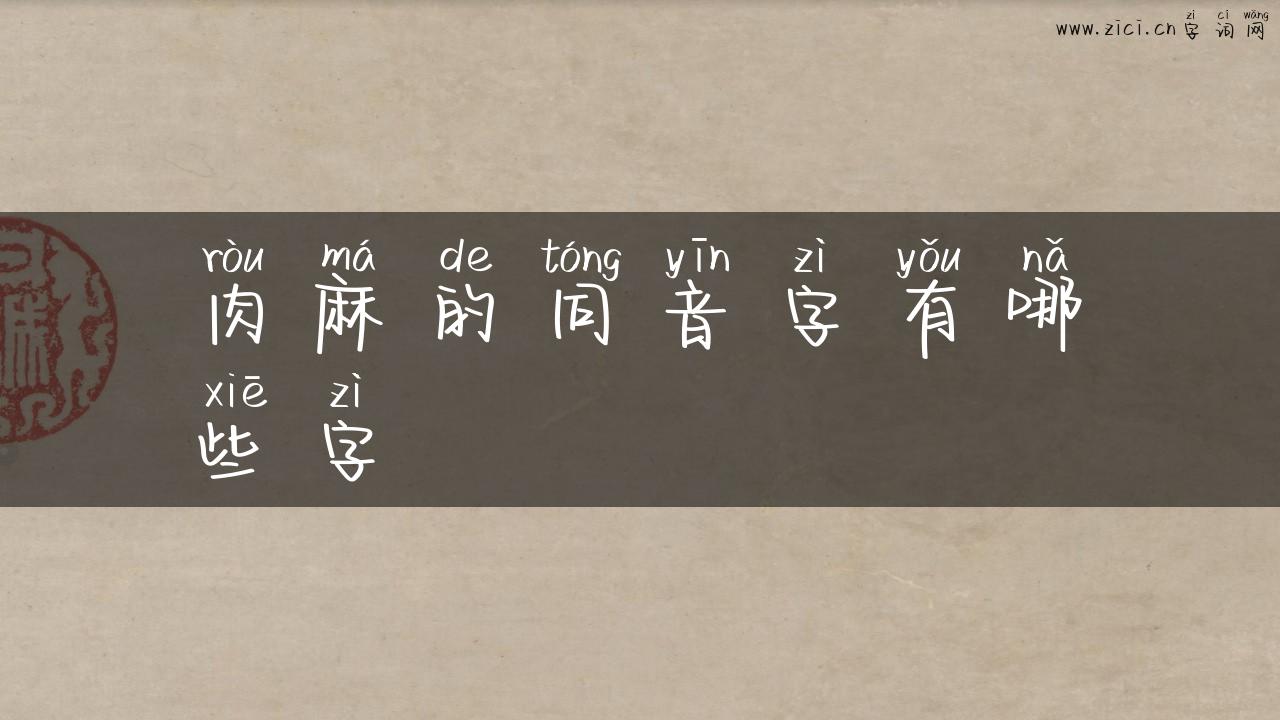 zì cí wǎng
www.zici.cn 字词网
ròu má de tóng yīn zì yǒu nǎ
肉麻的同音字有哪
xiē zì
些字